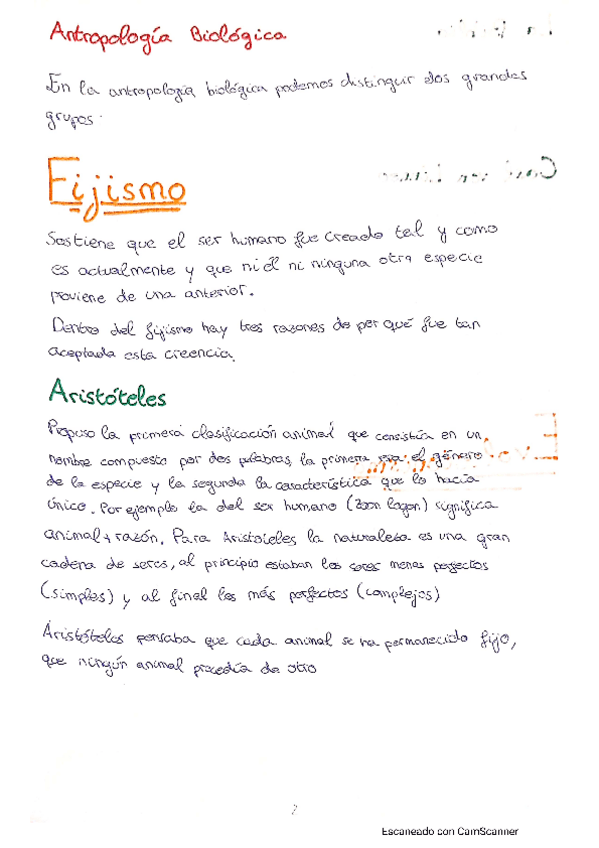 Antropología Biológica
En la antropología biológica podemos distinguir dos grandes
grupos.
Fijismo
Sostiene que el ser humano fue creado tal y como
es actualmente y que ni él ni ninguna otra especie
proviene de una anterior.
Dentro del fijismo hay tres razones de por qué fue tan
aceptada esta creencia.
Aristóteles
Propuso la primera clasificación animal que consistía en un
nombre compuesto por dos palabras, la primera era el género
de la especie y la segunda la característica que lo hacía
único. Por ejemplo la del ser humano (zoon logon) significa
animal + razón. Para Aristóteles la naturaleza es una gran
cadena de seres, al principio estaban los seres menos perfectos
(simples) y al final los más perfectos (complejos)
Aristóteles pensaba que cada animal se ha permanecido fijo,
que ningún animal procedía de otro
Escaneado con CamScanner